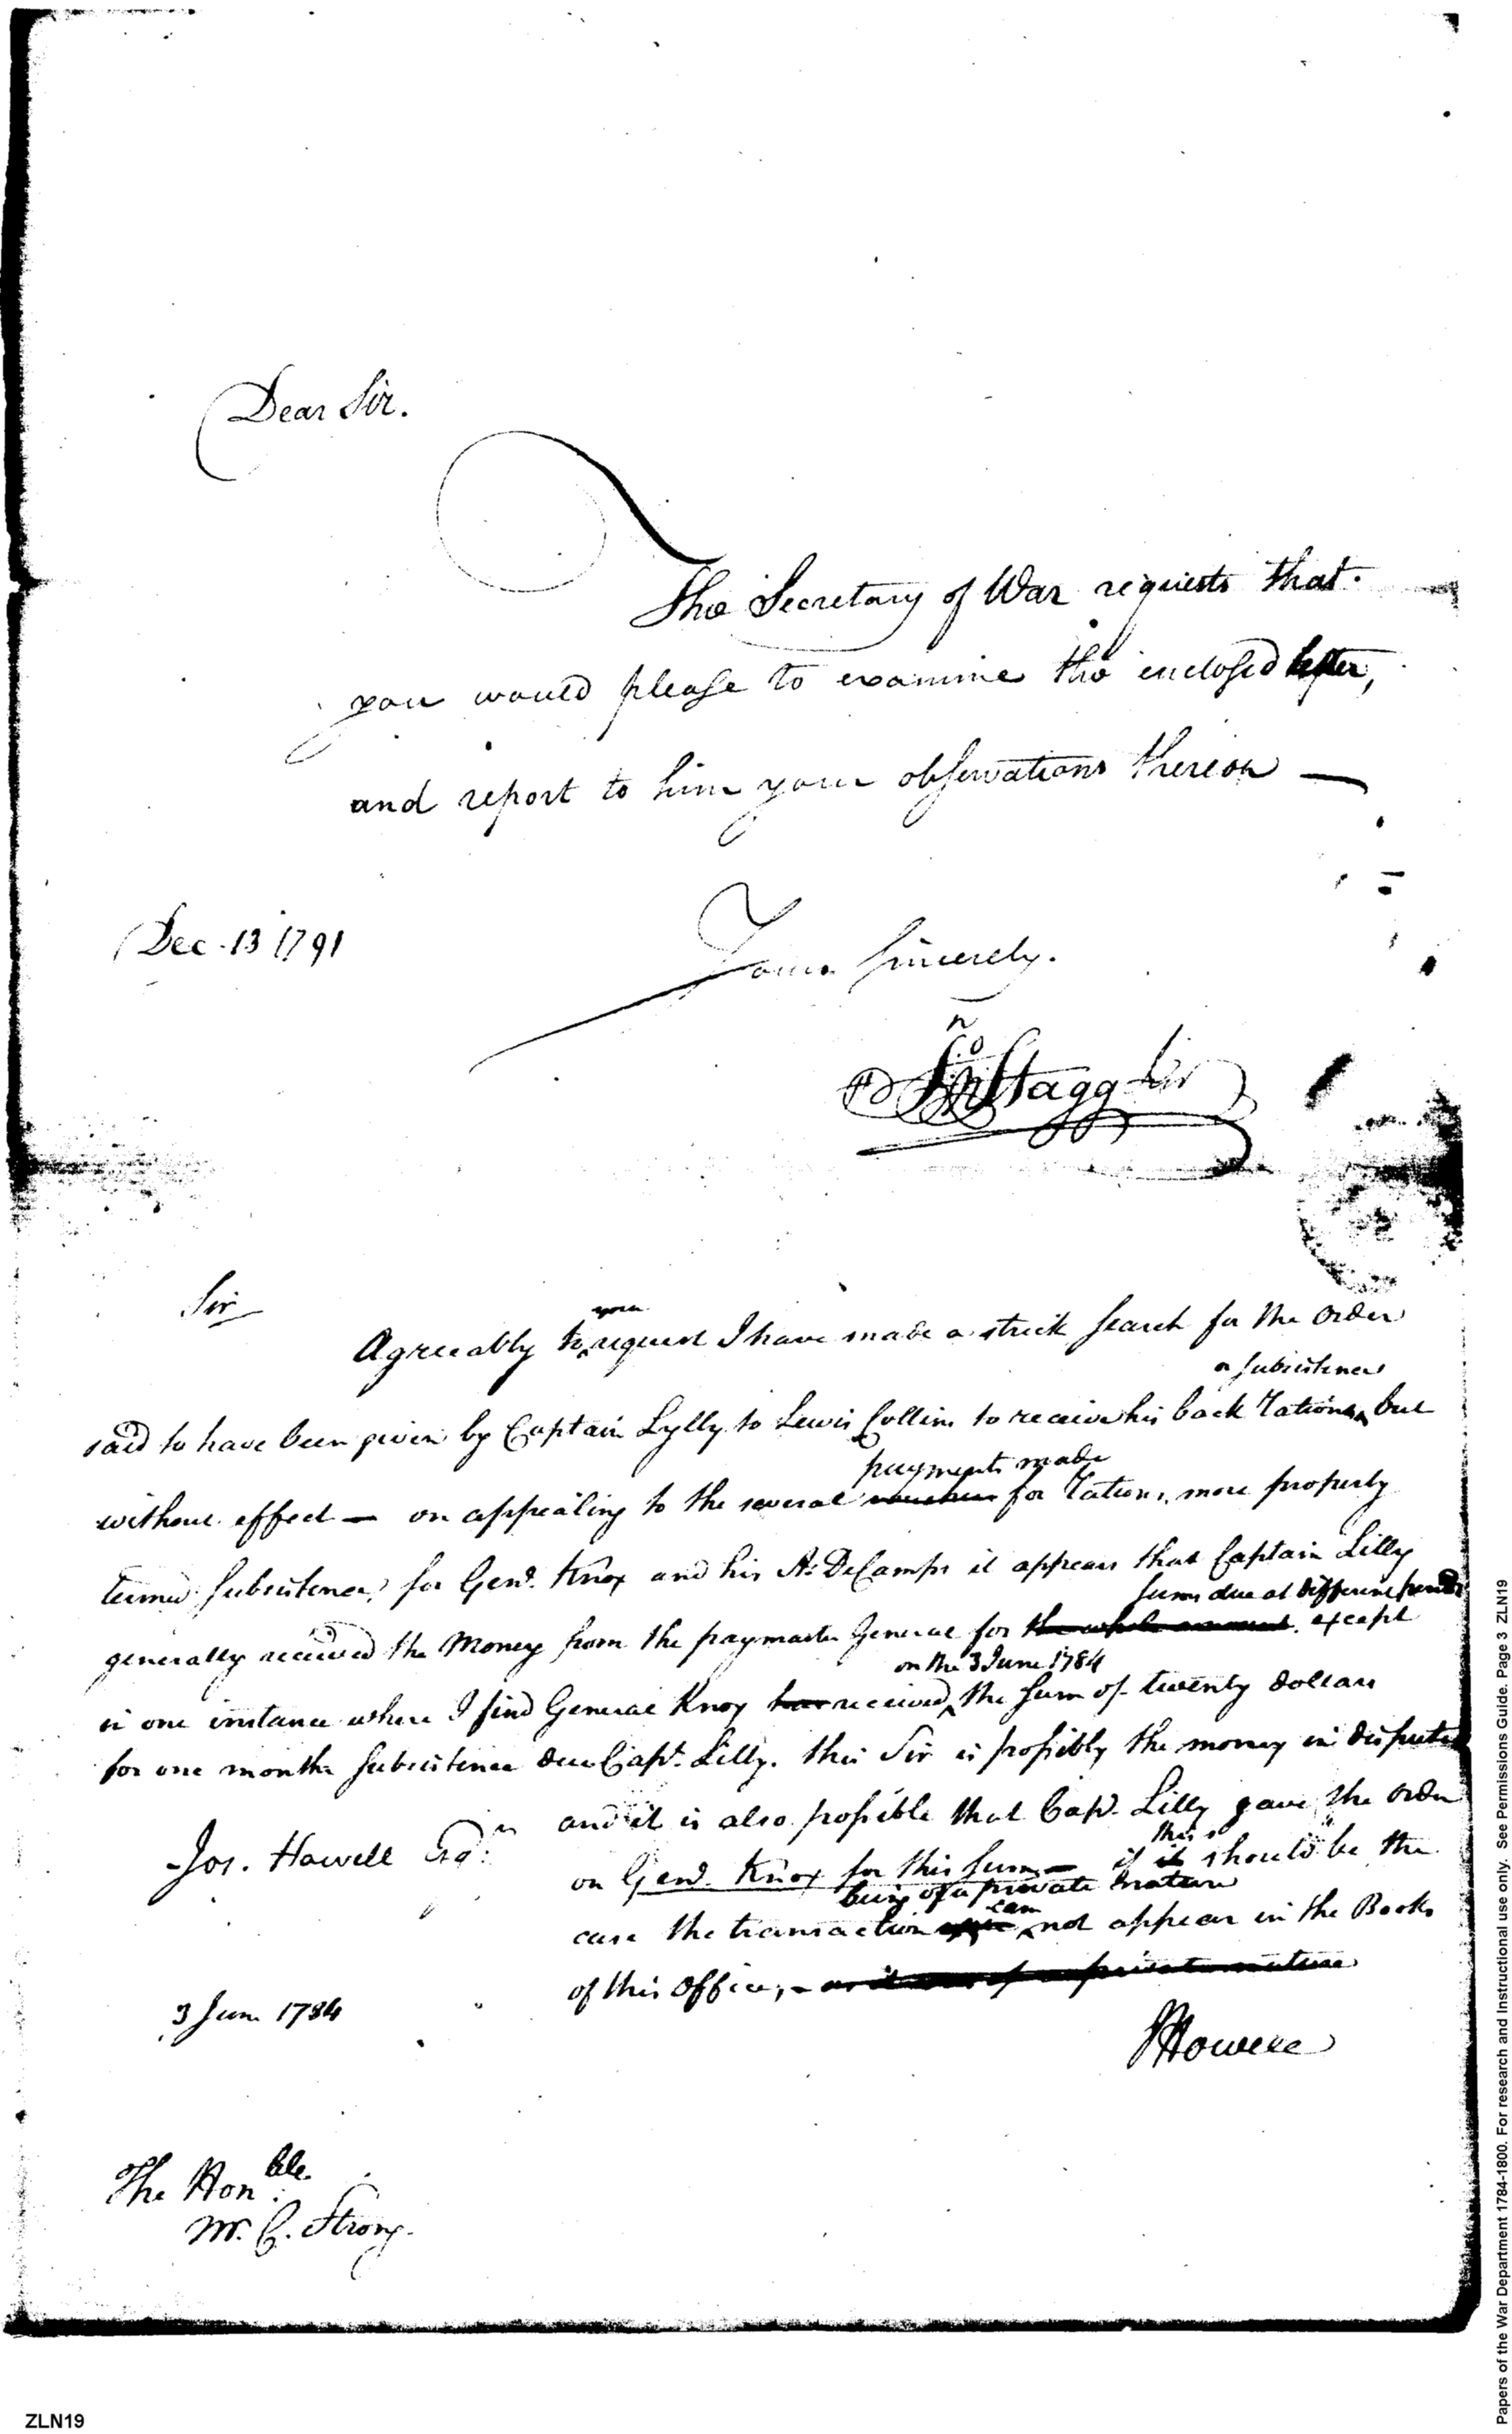 Dear Sir.
The Secretary of War requests that
you would please to examine the enclosed letter,
and report to him your observations thereon —
Dec. 13 1791
Yours sincerely.
Jno Stagg Jur
Sir
your
Agreeably to request I have made a strict search for the order
or subsistence
said to have been given by Captain Lylly to Lewis Collins to receive his back rations but
payments made
without effect — on appealing to the several vouchers for rations, more properly
termed subsistence, for Genl. Knox and his A. DeCamps it appears that Captain Lilly
sums due at different periods
generally received the Money from the paymaster General for the whole amount. except
on the 3 June 1784
in one instance where I find General Knox has received the sum of twenty dollars
for one months subsistence due Capt. Lilly. this Sir is possibly the money in dispute
and it is also possible that Capt. Lilly gave the order
Jos. Howell Esqr.
this
on Genl. Knox for this sum — if it should be the
being of a private nature
can
case the transaction not appear in the Books
of this Office, - as it was of a private nature
3 June 1784
JHowell
The Honble.
Mr. C. Strong.
Papers of the War Department 1784-1800. For research and Instructional use only. See Permissions Guide. Page 3 ZLN19
ZLN19